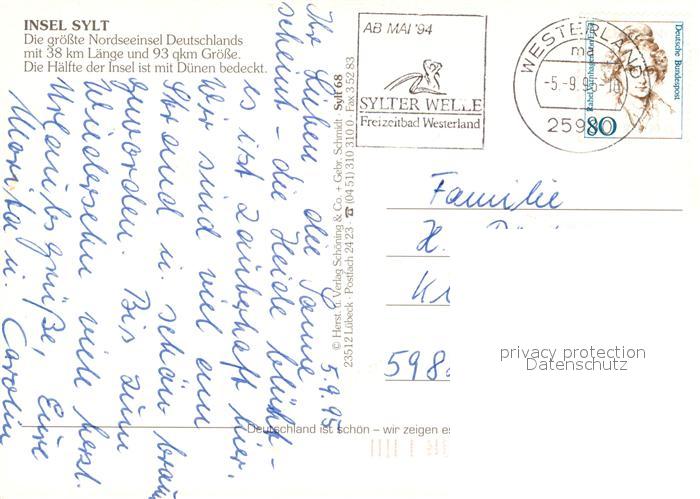 INSEL SYLT
Die größte Nordseeinsel Deutschlands
mit 38 km Länge und 93 qkm Größe.
Die Hälfte der Insel ist mit Dünen bedeckt.
AB MAI '94
SYLTER WELLE
Freizeitbad Westerland
WESTERLAND
-5.-9.95-
259
Deutsche Bundespost
80
5.9.95
Ihr Lieben die Sonne
scheint - die Heide blüht -
es ist zauberhaft hier.
Wir sind viel am
Strand u. schön braun
geworden. Bis zum
Wiedersehn viele herzl.
Urlaubsgrüße, Eure
Monika u. Carolin
© Herst. u. Verlag Schöning & Co. + Gebr. Schmidt · Sylt 68
23512 Lübeck · Postfach 24 23 · ☎ (04 51) 310 310 0 · Fax 3 52 83
Familie
H.
K
598
privacy protection
Datenschutz
Deutschland ist schön – wir zeigen es